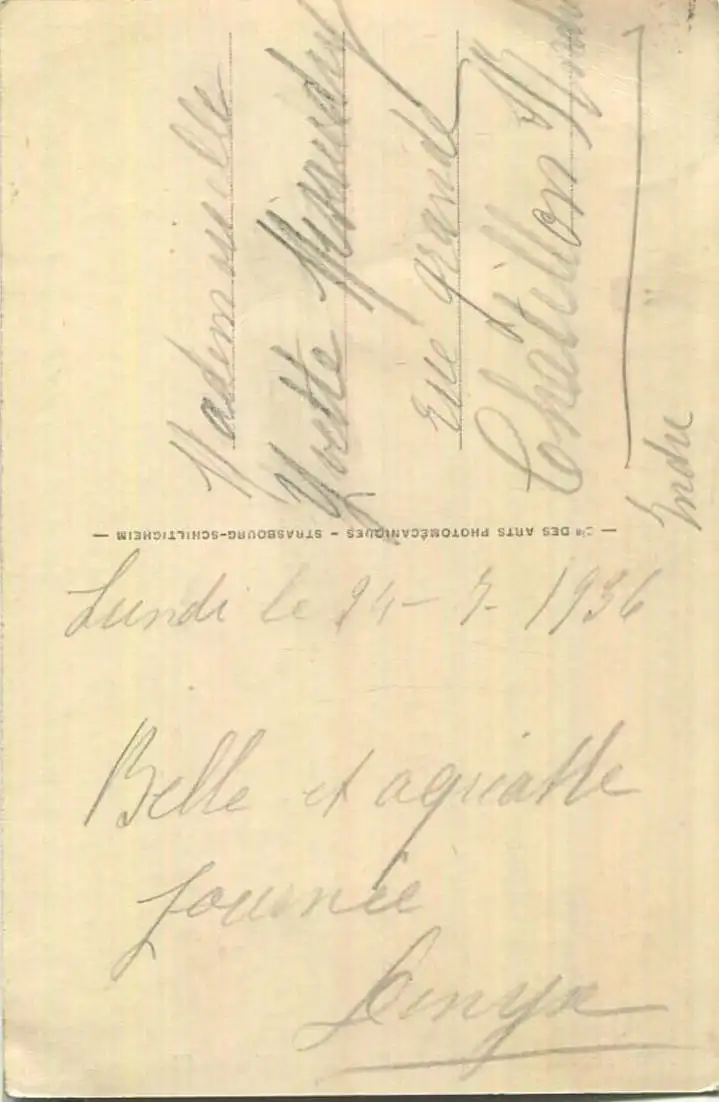 Mademoiselle
Yvette
Rue grande
Châtillon s/ Indre
Indre
Cie DES ARTS PHOTOMÉCANIQUES - STRASBOURG-SCHILTIGHEIM
Lundi le 24 - 7 - 1936
Belle et agriatle
Journée